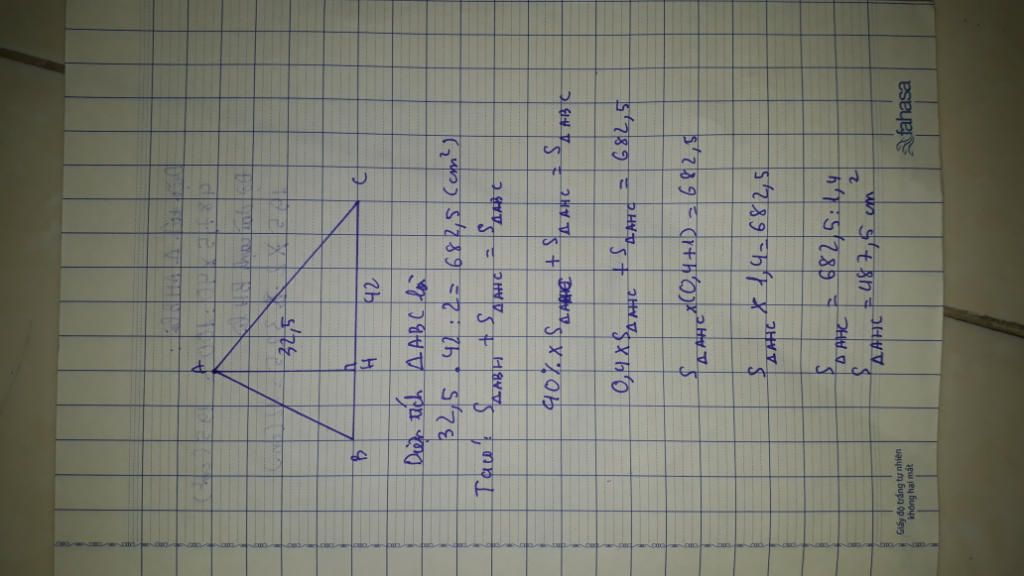 A
32,5
B
H
42
C
Diện tích ΔABC là
32,5 . 42 : 2 = 682,5 (cm²)
Ta có: SΔABH + SΔAHC = SΔABC
40% x SΔAHC + SΔAHC = SΔABC
0,4 x SΔAHC + SΔAHC = 682,5
SΔAHC x (0,4+1) = 682,5
SΔAHC x 1,4 = 682,5
SΔAHC = 682,5 : 1,4
SΔAHC = 487,5 cm²
Giấy độ trắng tự nhiên
không hại mắt
fahasa